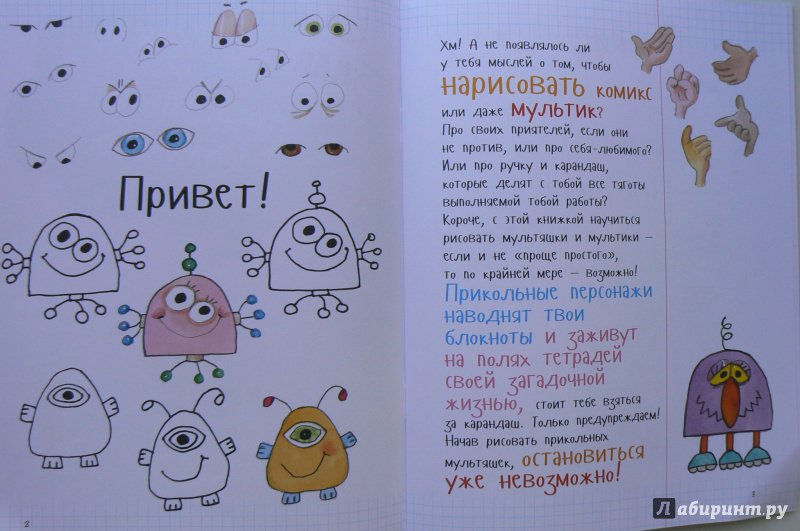 Привет!
2
Хм! А не появлялось ли
у тебя мыслей о том, чтобы
нарисовать комикс
или даже мультик?
Про своих приятелей, если они
не против, или про себя-любимого?
Или про ручку и карандаш,
которые делят с тобой все тяготы
выполняемой тобой работы?
Короче, с этой книжкой научиться
рисовать мультяшки и мультики –
если и не «проще простого»,
то по крайней мере – возможно!
Прикольные персонажи
наводнят твои
блокноты и заживут
на полях тетрадей
своей загадочной
жизнью, стоит тебе взяться
за карандаш. Только предупреждаем!
Начав рисовать прикольных
мультяшек, остановиться
уже невозможно!
3
Лабиринт.ру